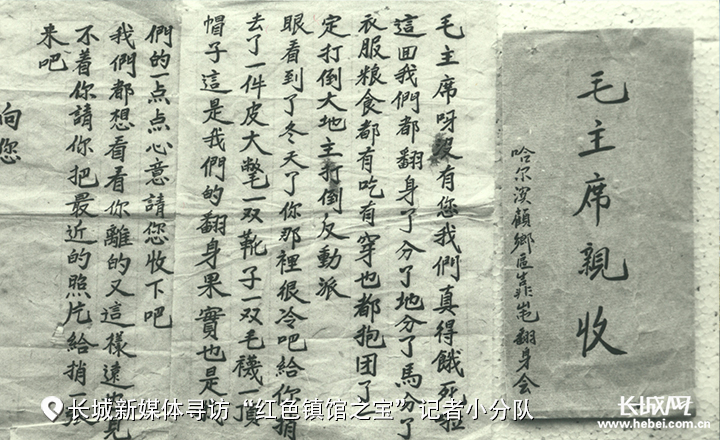 毛主席親收
哈尔濱顧鄉區靠崑翻身会
毛主席呀沒有您我們真得餓死啦
這回我們都翻身了分了地分了馬分了
衣服粮食都有吃有穿也都抱团了
定打倒大地主打倒反動派
眼看到了冬天了你那裡很冷吧給你捎
去了一件皮大氅一双靴子一双毛襪一頂
帽子這是我們的翻身果實也是我
們的一点点心意請您收下吧
我們都想看看你離的又這樣遠見
不着你請你把最近的照片給捎
来吧
向您
长城新媒体寻访“红色镇馆之宝”记者小分队
长城网
www.hebei.com.cn